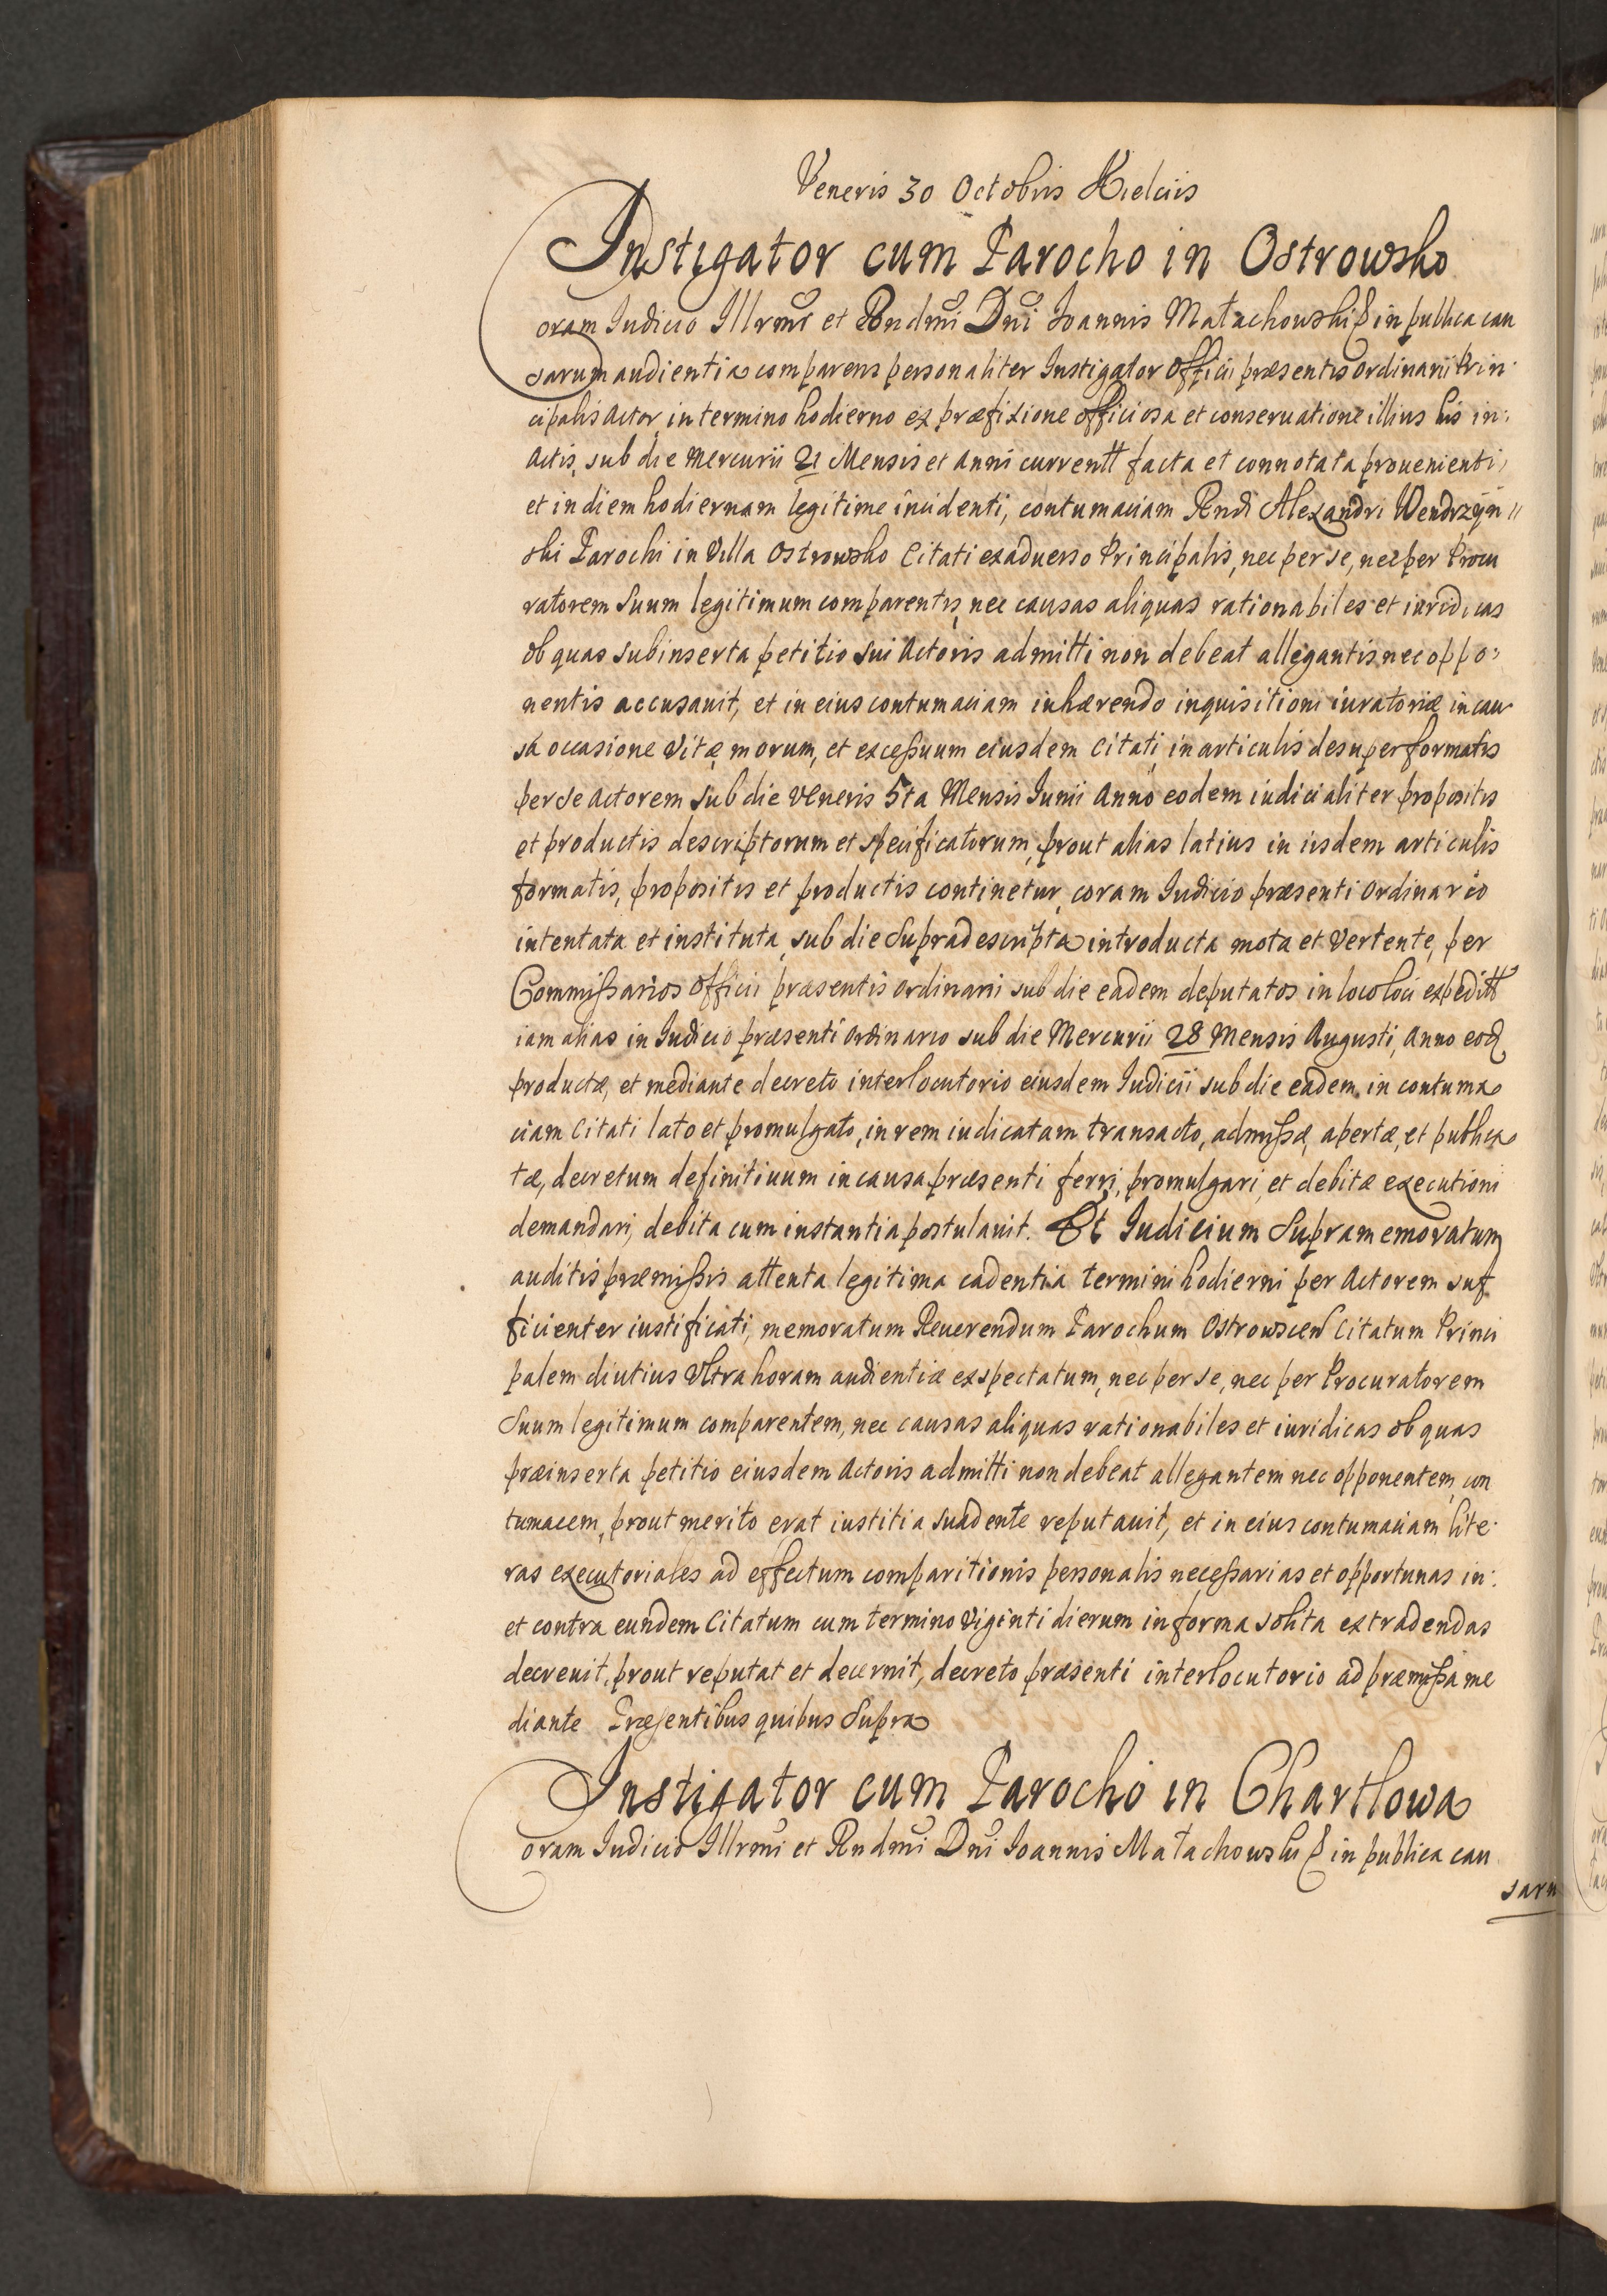 Veneris 30 Octobris Kielciis
Instigator cum Parocho in Ostrowsko
Coram Iudicio Illrmi et Rndmi Dni Ioannis Małachowski & in publica cau
sarum audientia comparens personaliter Instigator Officii præsentis ordinarii Prin
cipalis Actor in termino hodierno ex præfixione officiosa et conseruatione illius his in:
Actis, sub die Mercurii 21 Mensis et Anni currentt facta et connotata prouenienti,
et in diem hodiernam legitime incidenti, contumaciam Rendi Alexandri Wendrzyn//
ski Parochi in Villa Ostrowsko Citati ex aduerso Principalis, nec per se, nec per Procu
ratorem Suum legitimum comparentis, nec causas aliquas rationabiles et iuridicas
ob quas subinserta petitio sui Actoris admitti non debeat allegantis nec oppo:
nentis accusauit, et in eius contumaciam inhærendo inquisitioni iuratoriæ in cau
sa occasione Vitæ, morum, et excessuum eiusdem Citati, in articulis desuper formatis
per se Actorem sub die Veneris 5ta Mensis Iunii Anno eodem iudicialiter propositis
et productis descriptorum et specificatorum, prout alias latius in iisdem articulis
formatis, propositis et productis continetur, coram Iudicio præsenti Ordinario
intentata et instituta, sub die Supradescripta introducta mota et Vertente, per
Commissarios Officii præsentis ordinarii sub die eadem deputatos in loco loci expeditt
iam alias in Iudicio præsenti Ordinario sub die Mercurii 28 Mensis Augusti, Anno eod
productæ, et mediante decreto interlocutorio eiusdem Iudicii sub die eadem in contuma
ciam Citati lato et promulgato, in rem iudicatam transacto, admissæ, apertæ, et publica
tæ, decretum definitiuum in causa præsenti ferri, promulgari, et debitæ executioni
demandari, debita cum instantia postulauit. Et Iudicium Supramemoratum
auditis præmissis attenta legitima cadentia termini hodierni per Actorem suf
ficienter iustificati, memoratum Reuerendum Parochum Ostrowscen Citatum Princi
palem diutius Vltra horam audientiæ exspectatum, nec per se, nec per Procuratorem
Suum legitimum comparentem, nec causas aliquas rationabiles et iuridicas ob quas
præinserta petitio eiusdem Actoris admitti non debeat allegantem nec opponentem, con
tumacem, prout merito erat iustitia suadente reputauit, et in eius contumaciam lite:
ras executoriales ad effectum comparitionis personalis necessarias et opportunas in:
et contra eundem Citatum cum termino Viginti dierum in forma solita extradendas
decreuit, prout reputat et decernit, decreto præsenti interlocutorio ad præmissa me
diante Præsentibus quibus Supra
Instigator cum Parocho in Chartłowa
Coram Iudicio Illrmi et Rndmi Dni Ioannis Małachowski & in publica cau
saru